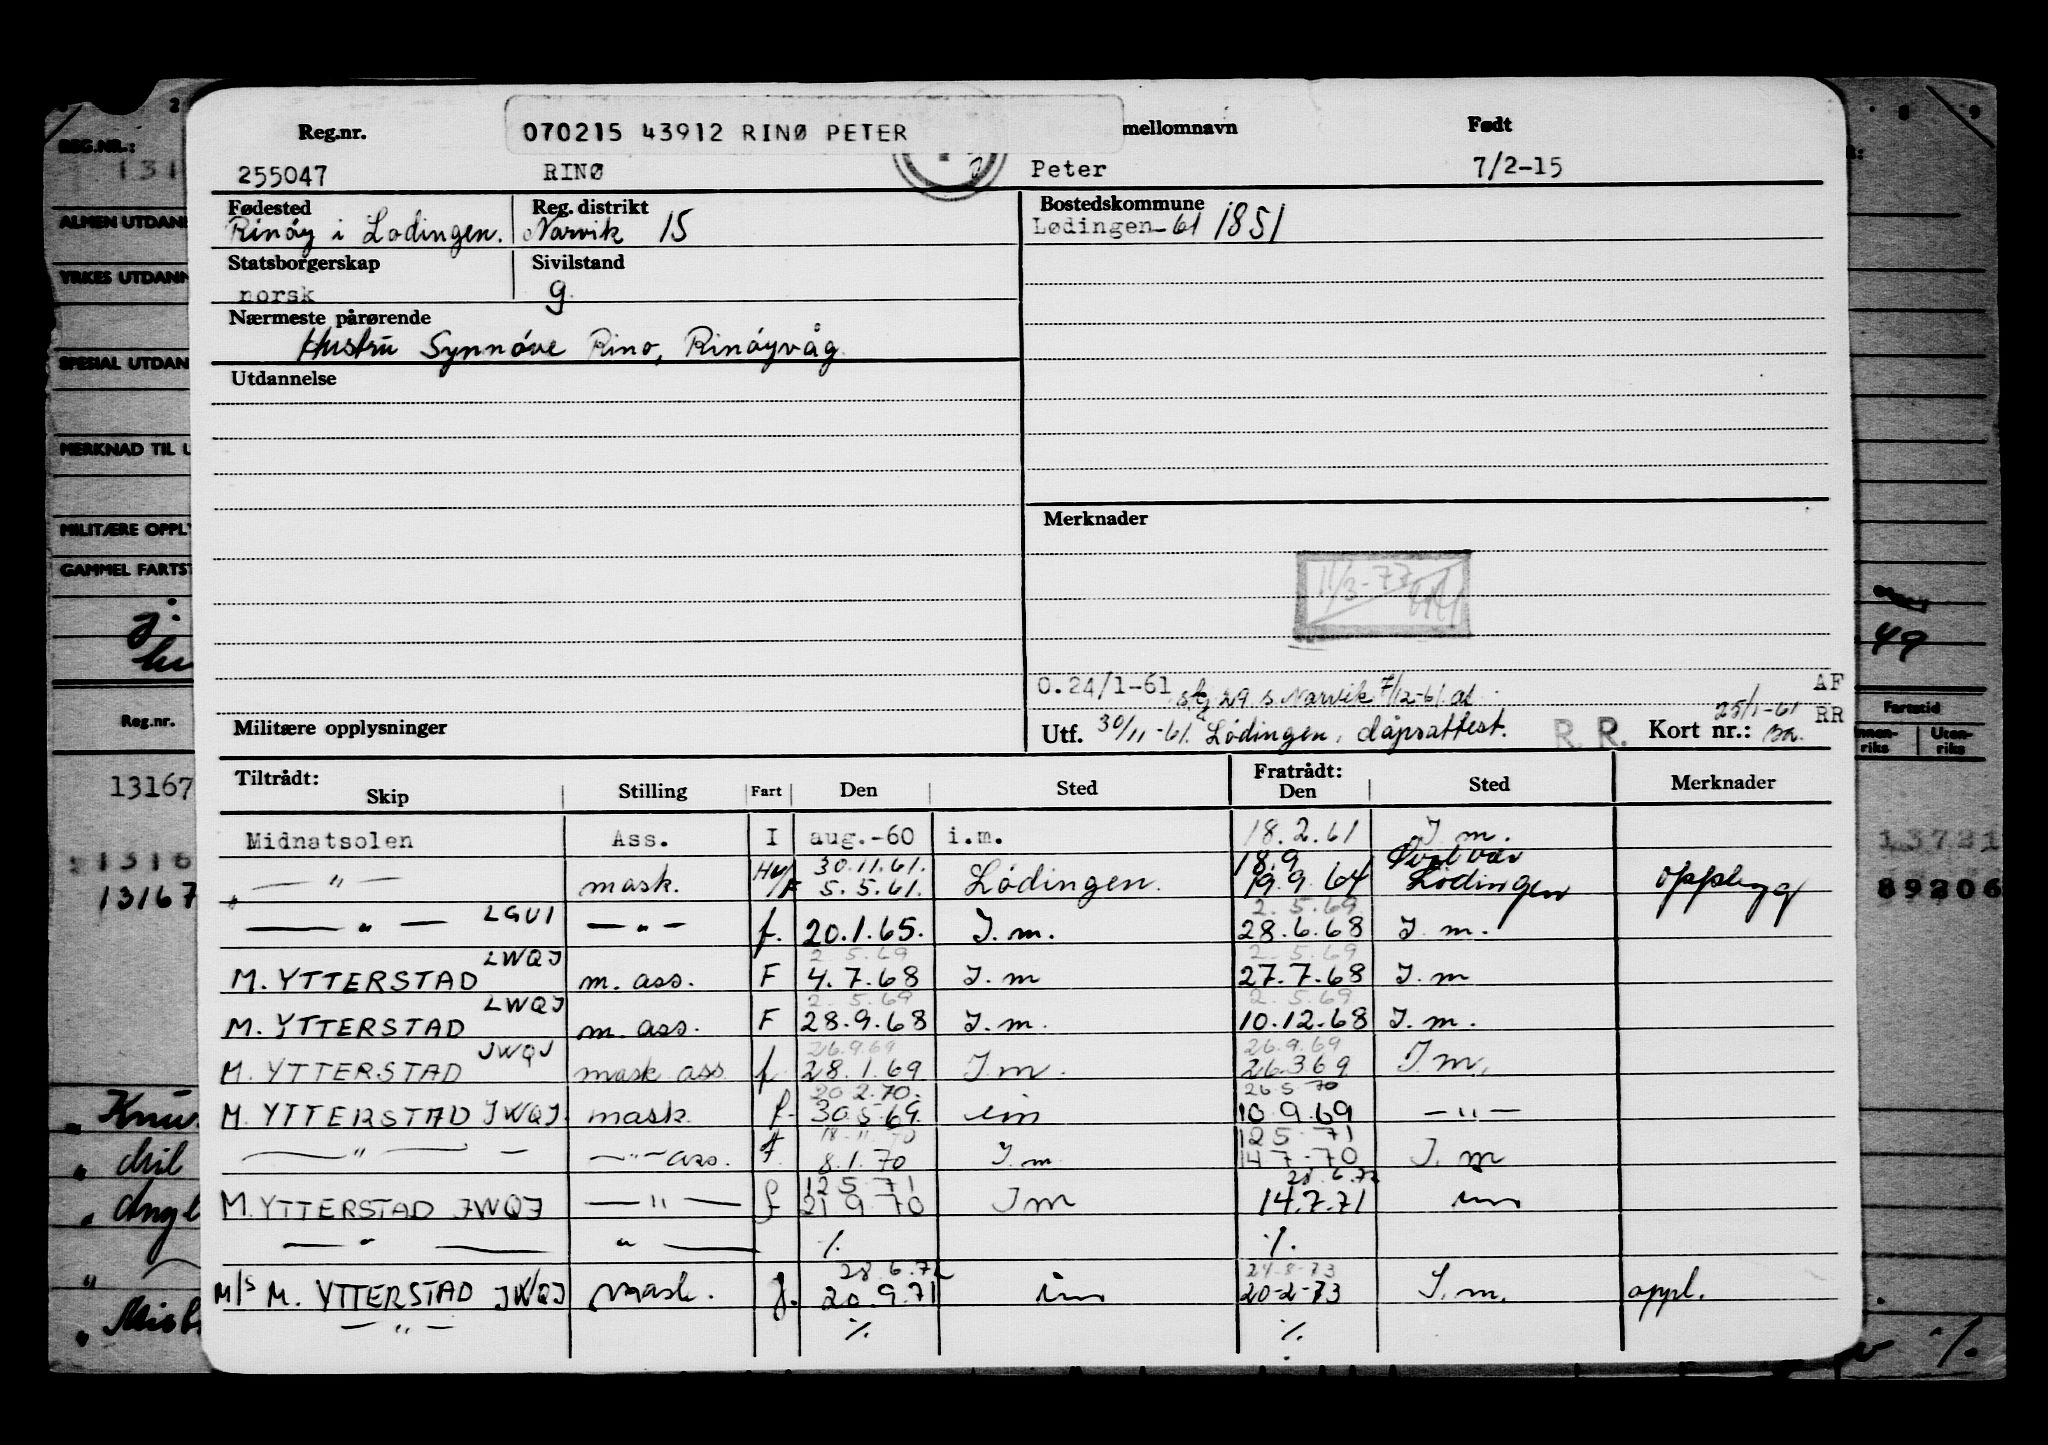 Reg.nr. 070215 43912 RINØ PETER mellomnavn Født
255047 RINØ Peter 7/2-15
Fødested Reg. distrikt Bostedskommune
Rinöy i Lödingen. Narvik 15 Lødingen-61 1851
Statsborgerskap Sivilstand
norsk g.
Nærmeste pårørende
Hustru Synnöve Rino, Rinöyvåg
Utdannelse
Merknader
11/3-77
O.24/1-61 s. Narvik 7/12-61. AF
Militære opplysninger Utf. 30/11-61. Lödingen, dåpsattest. R. R. Kort nr.: 25/1-61 RR
Tiltrådt: Fratrådt:
Skip Stilling Fart Den Sted Den Sted Merknader
Midnatsolen Ass. I aug.-60 i.m. 18.2.61 I m.
30.11.61. 18.9
— " — mask. 5.5.61. Lödingen. 19.9.64 Lödingen oppbygg
2.5.69
— " — LGUI — " — f. 20.1.65. I.m. 28.6.68 I.m.
2.5.69 2.5.69
M. YTTERSTAD LWQJ m. ass. F 4.7.68 I.m 27.7.68 I.m
2.5.69 2.5.69
M. YTTERSTAD LWQJ m. ass. F 28.9.68 I.m. 10.12.68 I.m.
26.9.69 26.9.69
M. YTTERSTAD JWQJ mask ass f 28.1.69 I m. 26.3.69 I m.
20.2.70. 26.5.70
M. YTTERSTAD JWQJ. mask. f. 30.5.69. im 10.9.69 — " —
18-11.70 12.5.71
— " — — " — ass. f 8.1.70 I m 14.7-70 I. m
12.5.71 28.6.72
M. YTTERSTAD JWQJ — " — f 21.9.70 I m 14.7.71 im
— " — " — ./. ./.
28.6.72 24-8-73
M/S M. YTTERSTAD JWQJ mask. f. 20.9.71 im 20-2-73 I.m. oppl.
— " — ./. ./.
REG.NR.:
131
ALMEN UTDAN
YRKES UTDANN
SPESIAL UTDAN
MERKNAD TIL U
MILITÆRE OPPLY
GAMMEL FARTST
Reg.nr.
13167
1316
13167
49
Fartstid
Innen-riks Uten-riks
13721
89206